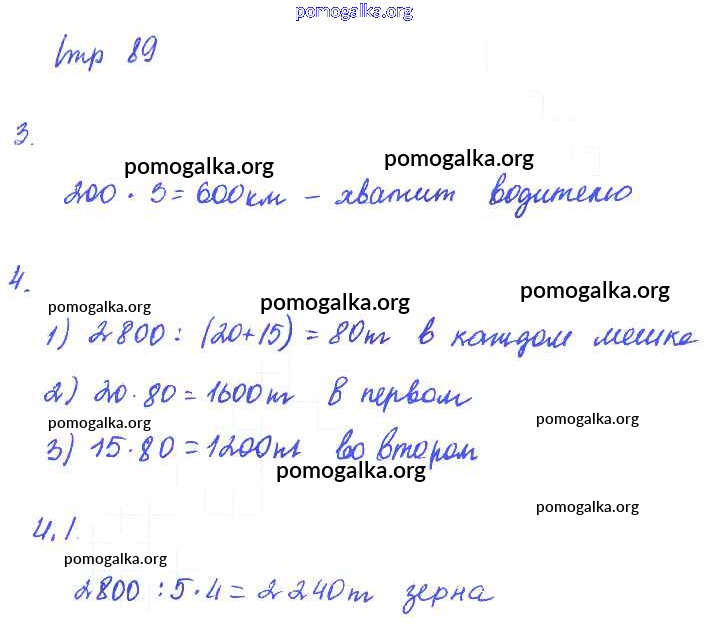 pomogalka.org
Стр 89
3.
pomogalka.org pomogalka.org
200 · 3 = 600 км – хватит водителю
4.
pomogalka.org pomogalka.org pomogalka.org
1) 2800 : (20+15) = 80т в каждом мешке
2) 20 · 80 = 1600т в первом
pomogalka.org pomogalka.org
3) 15 · 80 = 1200т во втором
pomogalka.org
pomogalka.org
4.1.
pomogalka.org
2800 : 5 · 4 = 2240т зерна